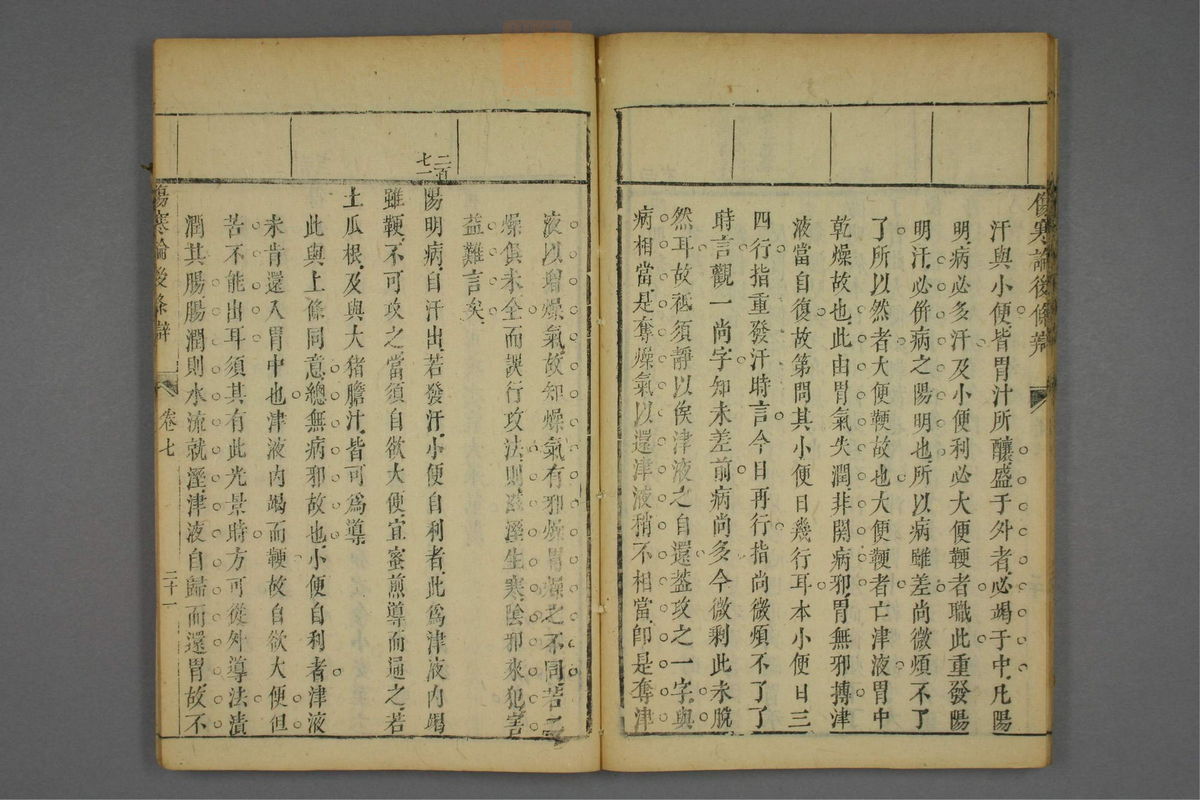 傷寒論後條辨
汗與小便皆胃汁所釀盛于外者必竭于中凡陽
明病必多汗及小便利必大便鞕者職此重發陽
明汗必併病之陽明也所以病雖差尚微煩不了
了所以然者大便鞕故也大便鞕者亡津液胃中
乾燥故也此由胃氣失潤非關病邪胃無邪摶津
液當自復故第問其小便日幾行耳本小便日三
四行指重發汗時言今日再行指尚微煩不了了
時言觀一尚字知未差前病尚多今微剩此未脫
然耳故祇須靜以俟津液之自還葢攻之一字與
病相當是奪燥氣以還津液稍不相當卽是奪津
液以增燥氣故知燥氣有邪燥胃燥之不同若
燥俱未全而誤行攻法則滋溼生寒陰邪來犯害
益難言矣
二百七一
陽明病自汗出若發汗小便自利者此爲津液內竭
雖鞕不可攻之當須自欲大便宜蜜煎導而通之若
土瓜根及與大猪膽汁皆可爲導
此與上條同意總無病邪故也小便自利者津液
未肯還入胃中也津液內竭而鞕故自欲大便但
苦不能出耳須其有此光景時方可從外導法漬
潤其腸腸潤則水流就溼津液自歸而還胃故不
傷寒論後條辨
卷七
二十一